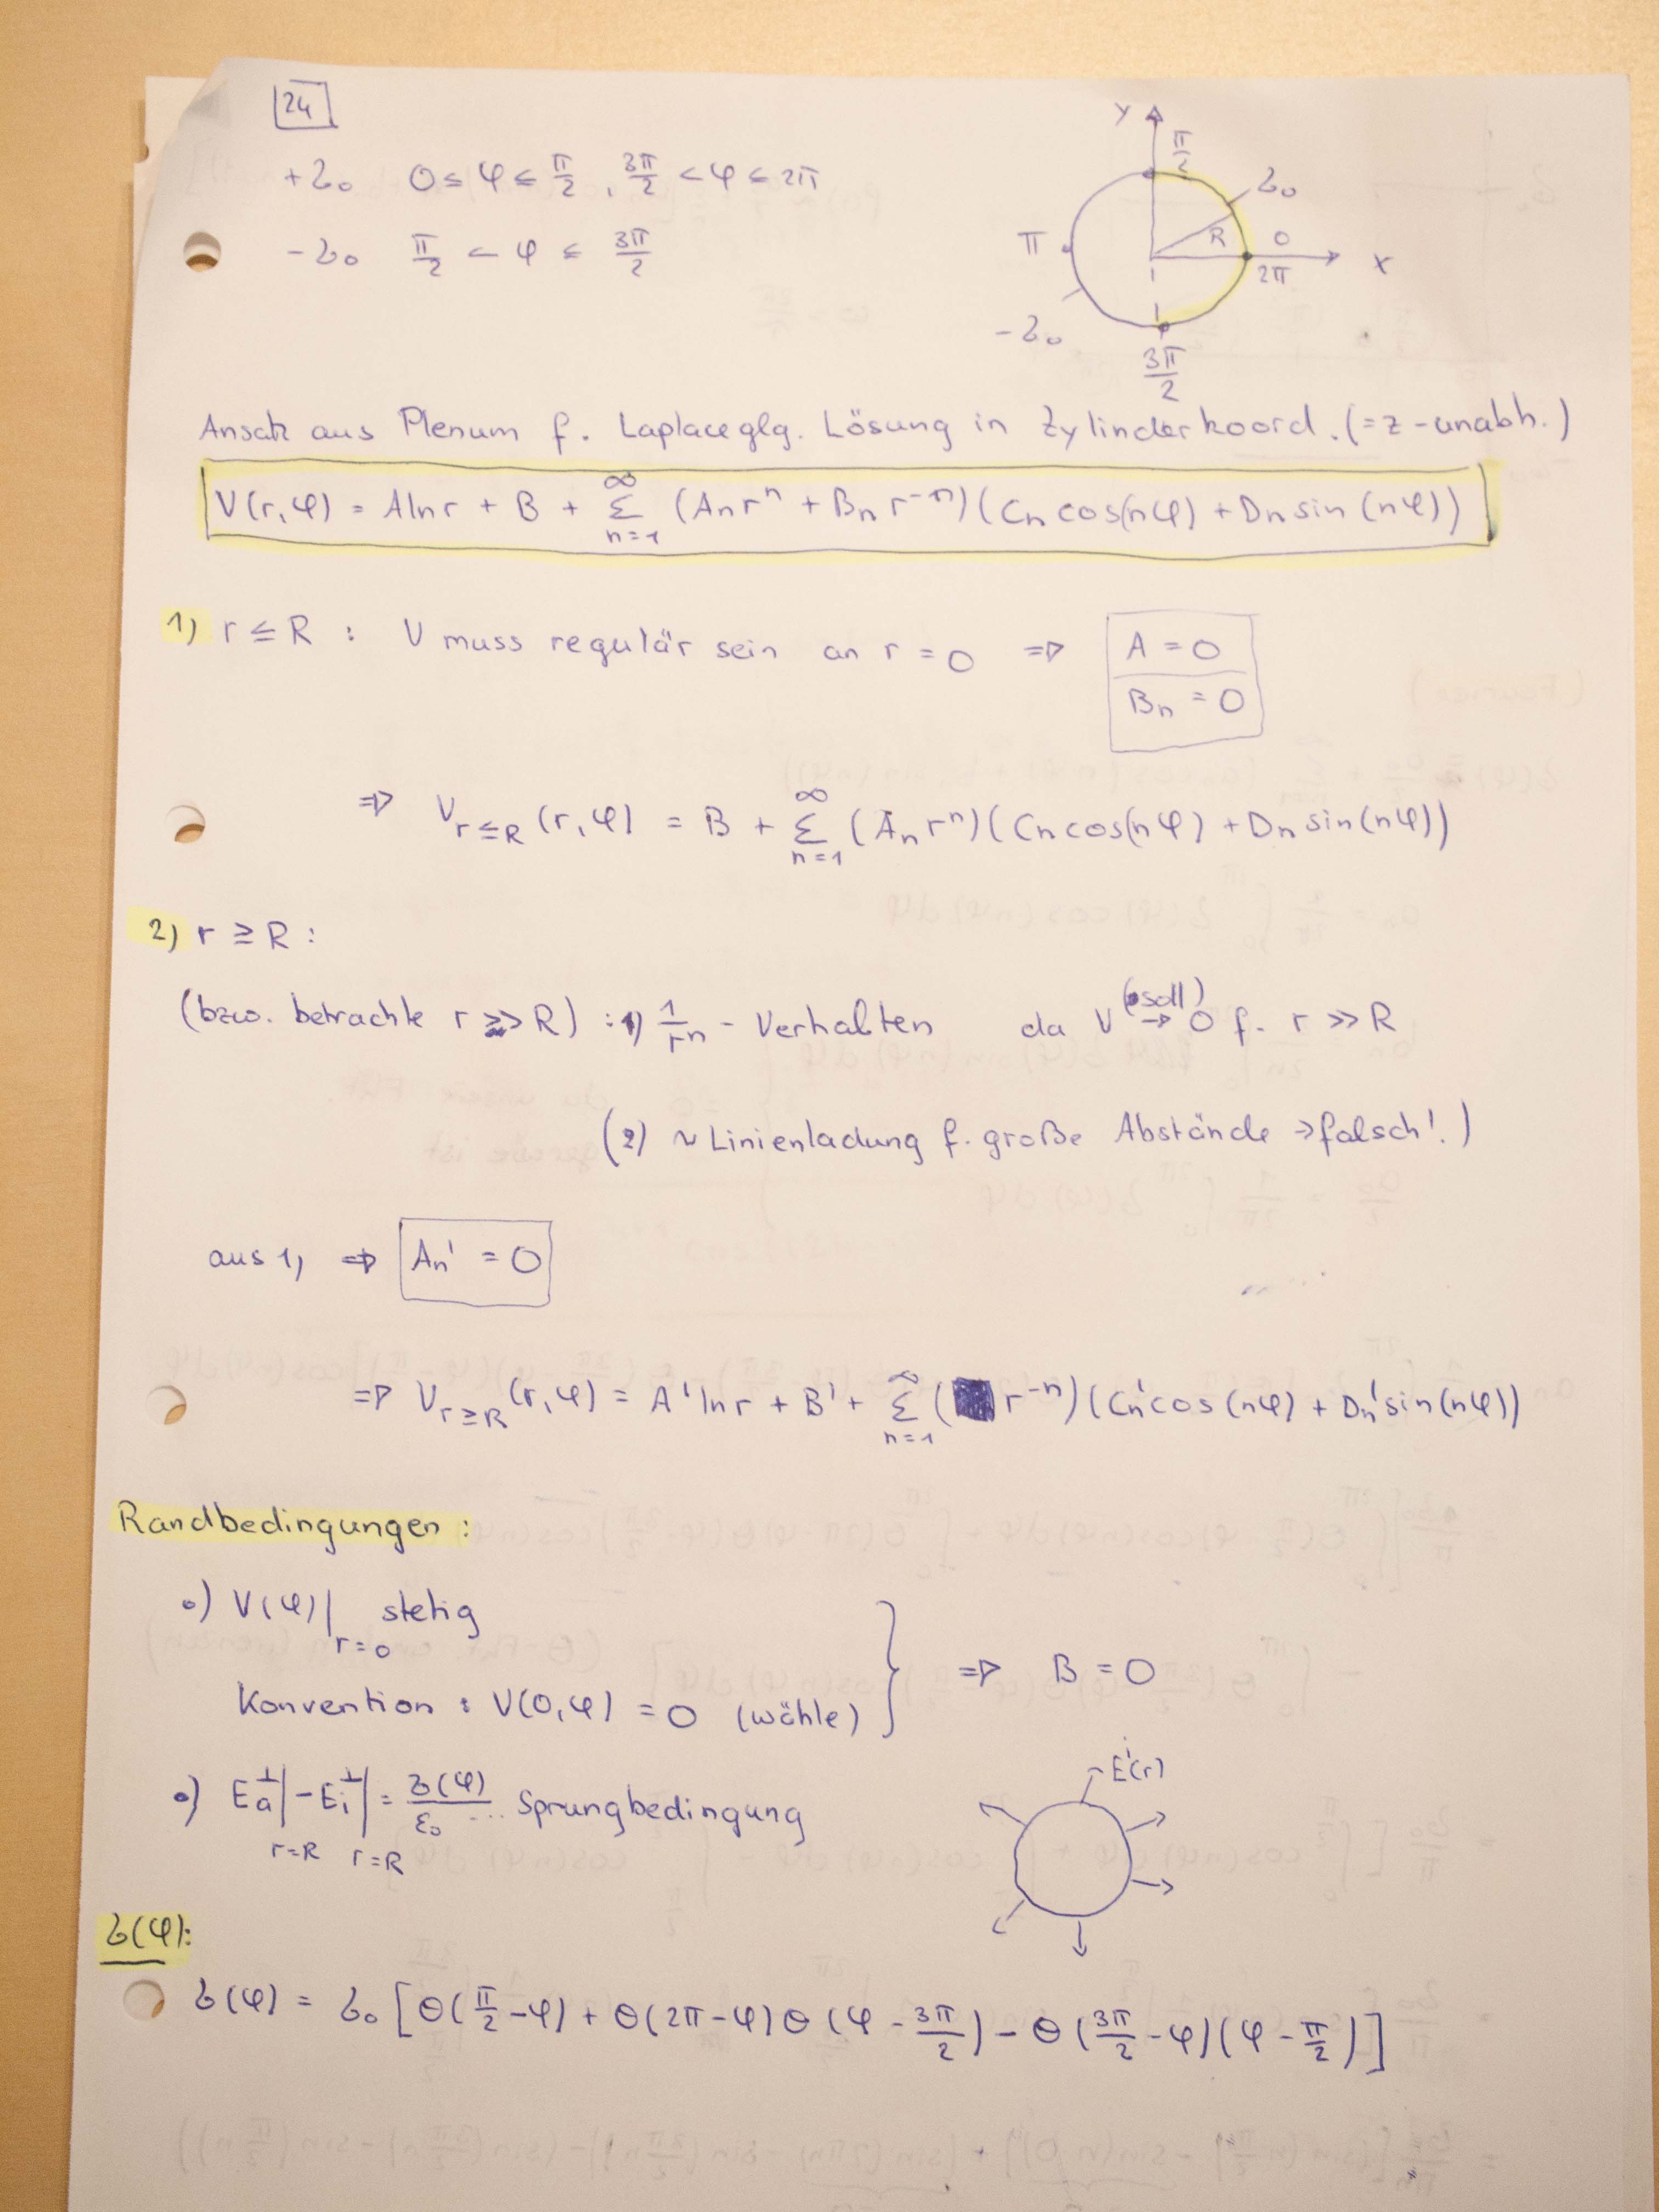 24
+σ₀ 0 ≤ φ ≤ π/2 , 3π/2 < φ ≤ 2π
-σ₀ π/2 < φ ≤ 3π/2
y
π/2
σ₀
π
R
0
2π
x
-σ₀
3π/2
Ansatz aus Plenum f. Laplaceglg. Lösung in Zylinderkoord. (= z-unabh.)
V(r,φ) = A ln r + B + Σ_{n=1}^{∞} (Aₙ rⁿ + Bₙ r⁻ⁿ)(Cₙ cos(nφ) + Dₙ sin(nφ))
1) r ≤ R : V muss regulär sein an r = 0 ⇒ A = 0
Bₙ = 0
⇒ V_{r≤R} (r,φ) = B + Σ_{n=1}^{∞} (Aₙ rⁿ)(Cₙ cos(nφ) + Dₙ sin(nφ))
2) r ≥ R :
(bzw. betrachte r >> R) : 1) 1/rⁿ - Verhalten da V (soll) → 0 f. r >> R
(2) ~ Linienladung f. große Abstände → falsch!)
aus 1) ⇒ Aₙ' = 0
⇒ V_{r≥R} (r,φ) = A' ln r + B' + Σ_{n=1}^{∞} ( r⁻ⁿ)(Cₙ' cos(nφ) + Dₙ' sin(nφ))
Randbedingungen :
•) V(φ)|_{r=0} stetig
Konvention : V(0,φ) = 0 (wähle) ⇒ B = 0
•) E_a^⊥|_{r=R} - E_i^⊥|_{r=R} = σ(φ)/ε₀ ... Sprungbedingung
E(r)
σ(φ):
σ(φ) = σ₀ [θ(π/2 - φ) + θ(2π - φ) θ(φ - 3π/2) - θ(3π/2 - φ)(φ - π/2)]